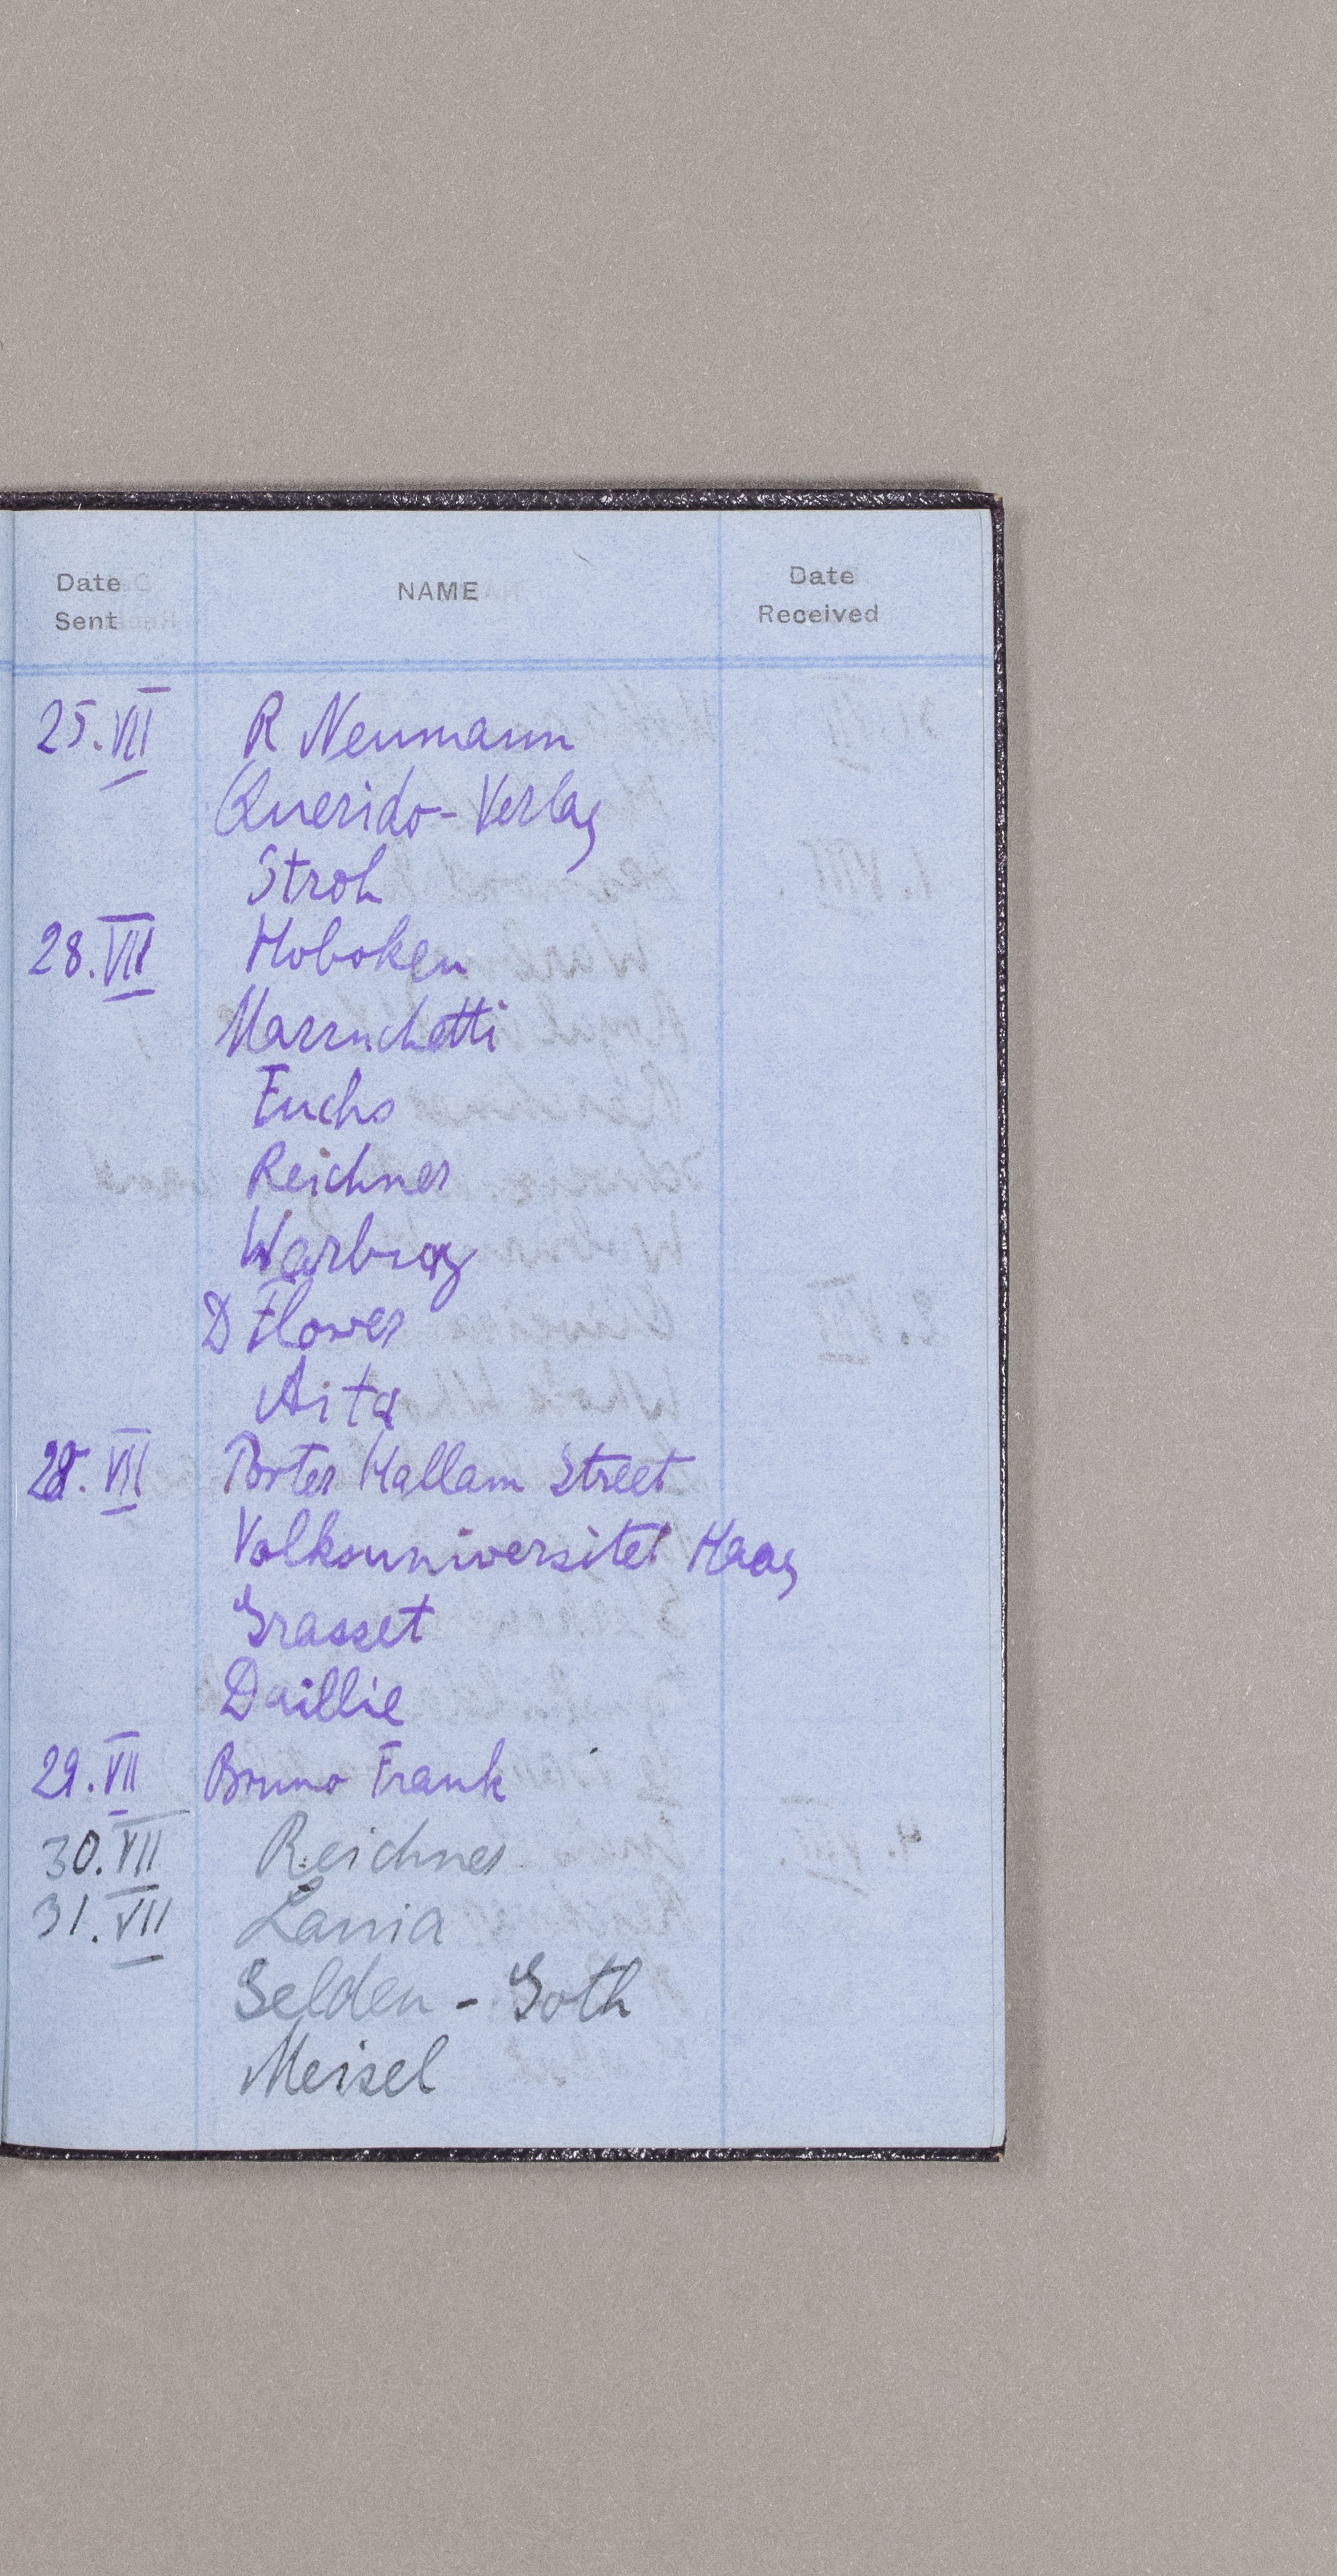 Date Sent NAME Date Received
25.VII R Neumann
Querido-Verlag
Stroh
28.VII Hoboken
Marruchetti
Fuchs
Reichner
Warburg
D Flower
Aita
28.VII Porter Hallam Street
Volksuniversitet Haag
Grasset
Daillie
29.VII Bruno Frank
30.VII Reichner
31.VII Lania
Selden-Goth
Meisel